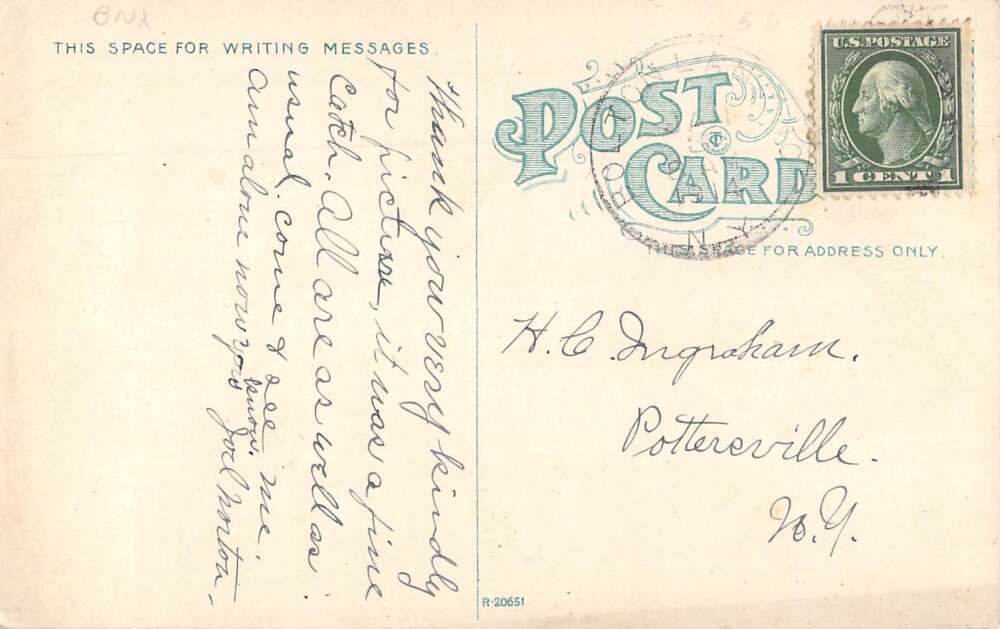 BNX
5 D
THIS SPACE FOR WRITING MESSAGES.
Thank you very kindly
for picture, it was a fine
Catch. All are as well as
usual. come & see me.
am alone now you know.
Joel Norton.
POST CARD
BOLTON LANDING
N.Y.
U.S. POSTAGE
1 CENT 1
THIS SPACE FOR ADDRESS ONLY.
H. C. Ingraham.
Pottersville.
N.Y.
R-20651